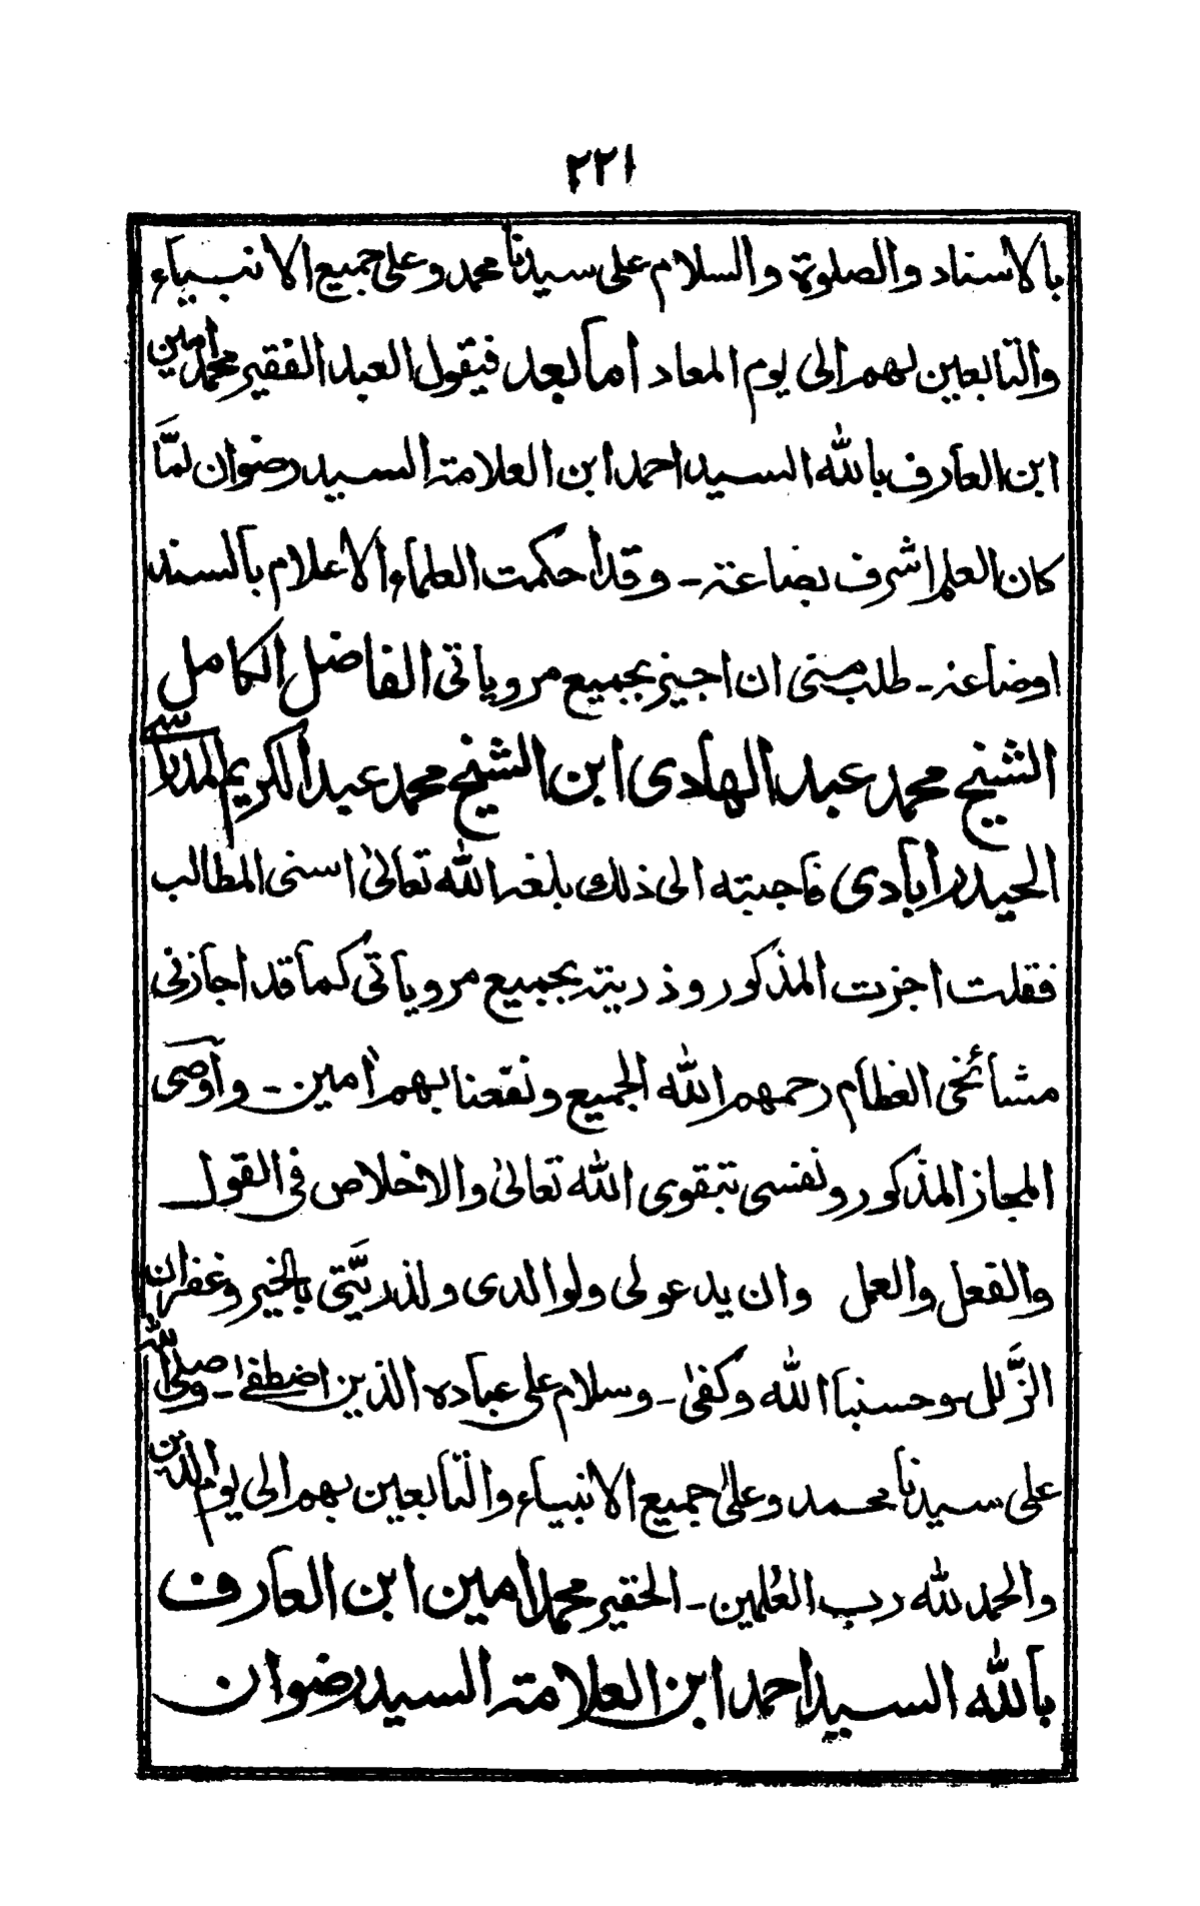 ٢٢١
بالاسناد والصلوة والسلام على سيدنا محمد وعلى جميع الانبياء
والتابعين لهم الى يوم المعاد اما بعد فيقول العبد الفقير محمد امين
ابن العارف بالله السيد احمد ابن العلامة السيد رضوان لمّا
كان العلم اشرف بضاعة - وقد احكمت العلماء الاعلام بالسند
اوضاعه - طلب منى ان اجيز بجميع مروياتى الفاضل الكامل
الشيخ محمد عبد الهادى ابن الشيخ محمد عبد الكريم المدراسى
الحيدرابادى فاجبته الى ذلك بلغه الله تعالىٰ اسنى المطالب
فقلت اجزت المذكور وذريته بجميع مروياتى كما قد اجازنى
مشائخى العظام رحمهم الله الجميع ونفعنا بهم اٰمين - واوصى
المجاز المذكور ونفسى بتقوى الله تعالىٰ والاخلاص فى القول
والفعل والعمل وان يدعو لى ولوالدى ولذريّتى بالخير وغفران
الزّلل - وحسبنا الله وكفىٰ - وسلام على عباده الذين اصطفىٰ - وصلى الله
على سيدنا محمد وعلىٰ جميع الانبياء والتابعين بهم الى يوم الدين
والحمد لله رب العٰلمين - الحقير محمد امين ابن العارف
بالله السيد احمد ابن العلامة السيد رضوان